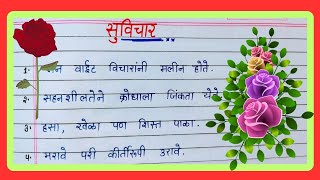 सुविचार
1. मन वाईट विचारांनी मलीन होते.
2. सहनशीलतेने क्रोधाला जिंकता येते.
3. हसा, खेळा पण शिस्त पाळा.
4. मरावे परी कीर्तीरूपी उरावे.